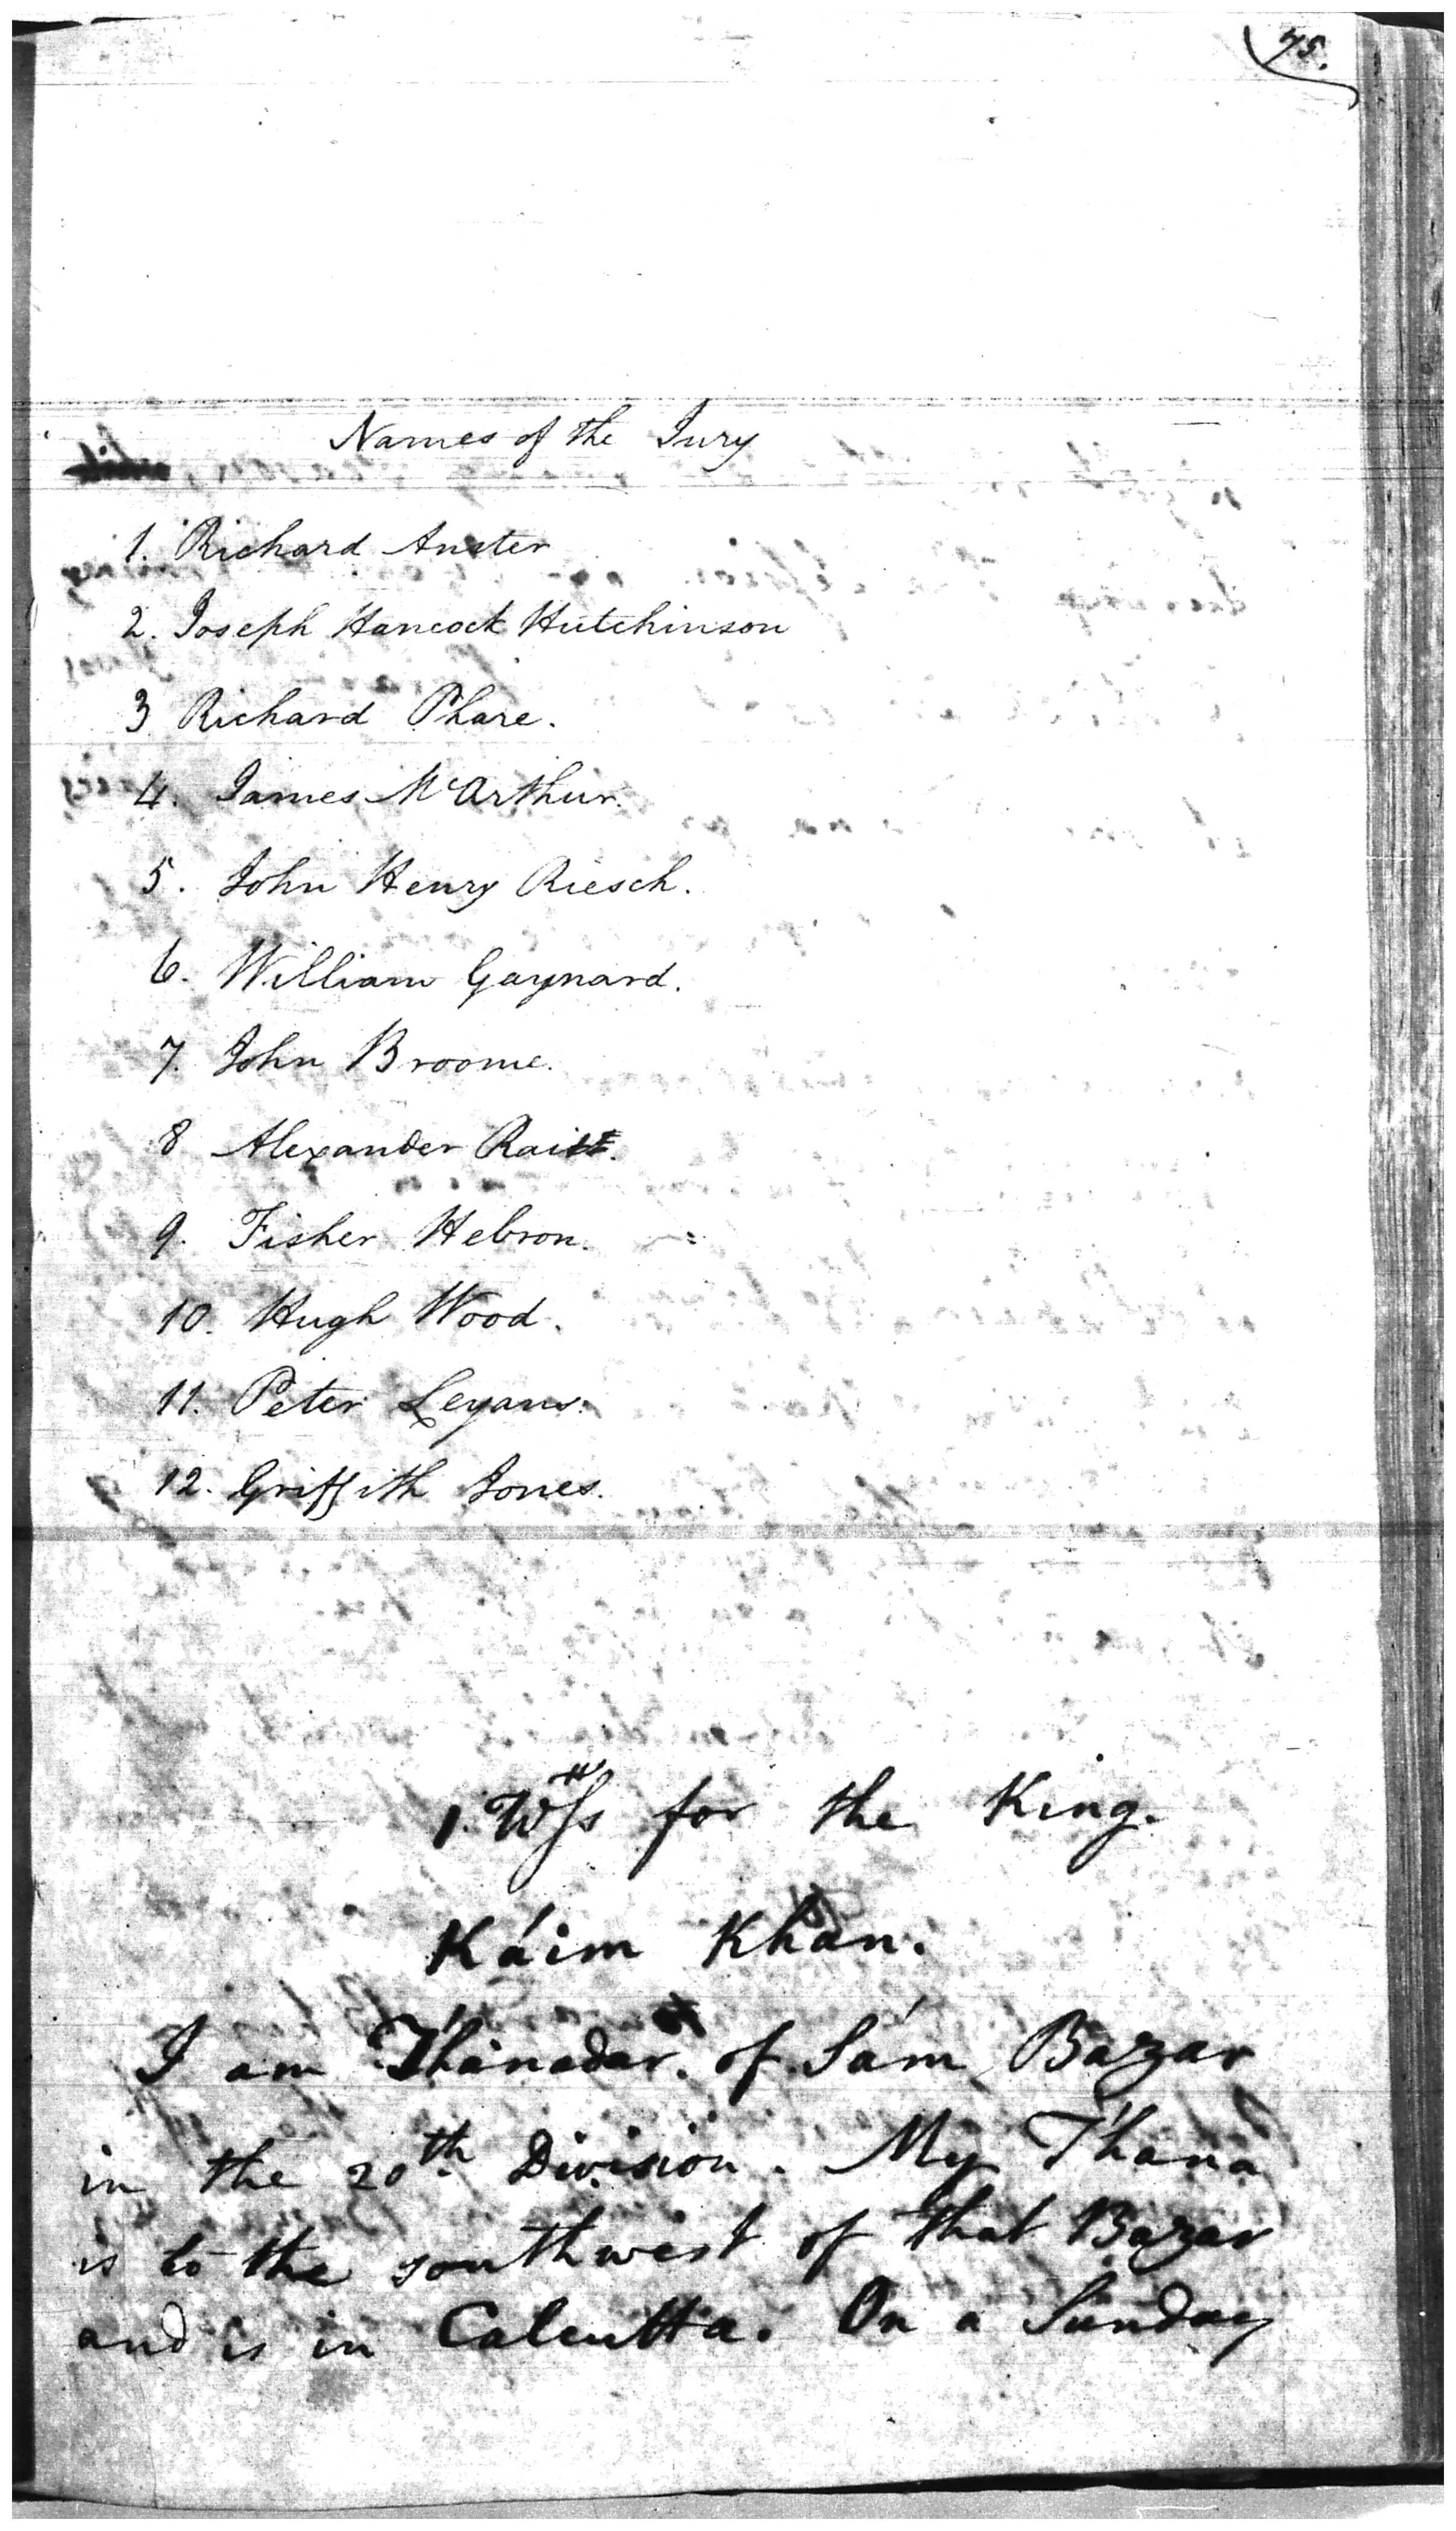 75.
Names of the Jury
1. Richard Anster
2. Joseph Hancock Hutchinson
3 Richard Phare.
4. James McArthur.
5. John Henry Riesch.
6. William Gaynard.
7. John Broome.
8 Alexander Raitt.
9. Fisher Hebron.
10. Hugh Wood.
11. Peter Leyans.
12. Griffith Jones.
1. Wss for the King.
Káim Khan.
I am Thánadar of Sám Bazar
in the 20th Division. My Thana
is to the southwest of that Bazar
and is in Calcutta. On a Sunday